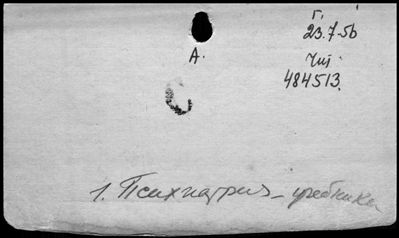 Г.
23.7.56
А.
Чит.
484513.
1. Психиатрия – учебники